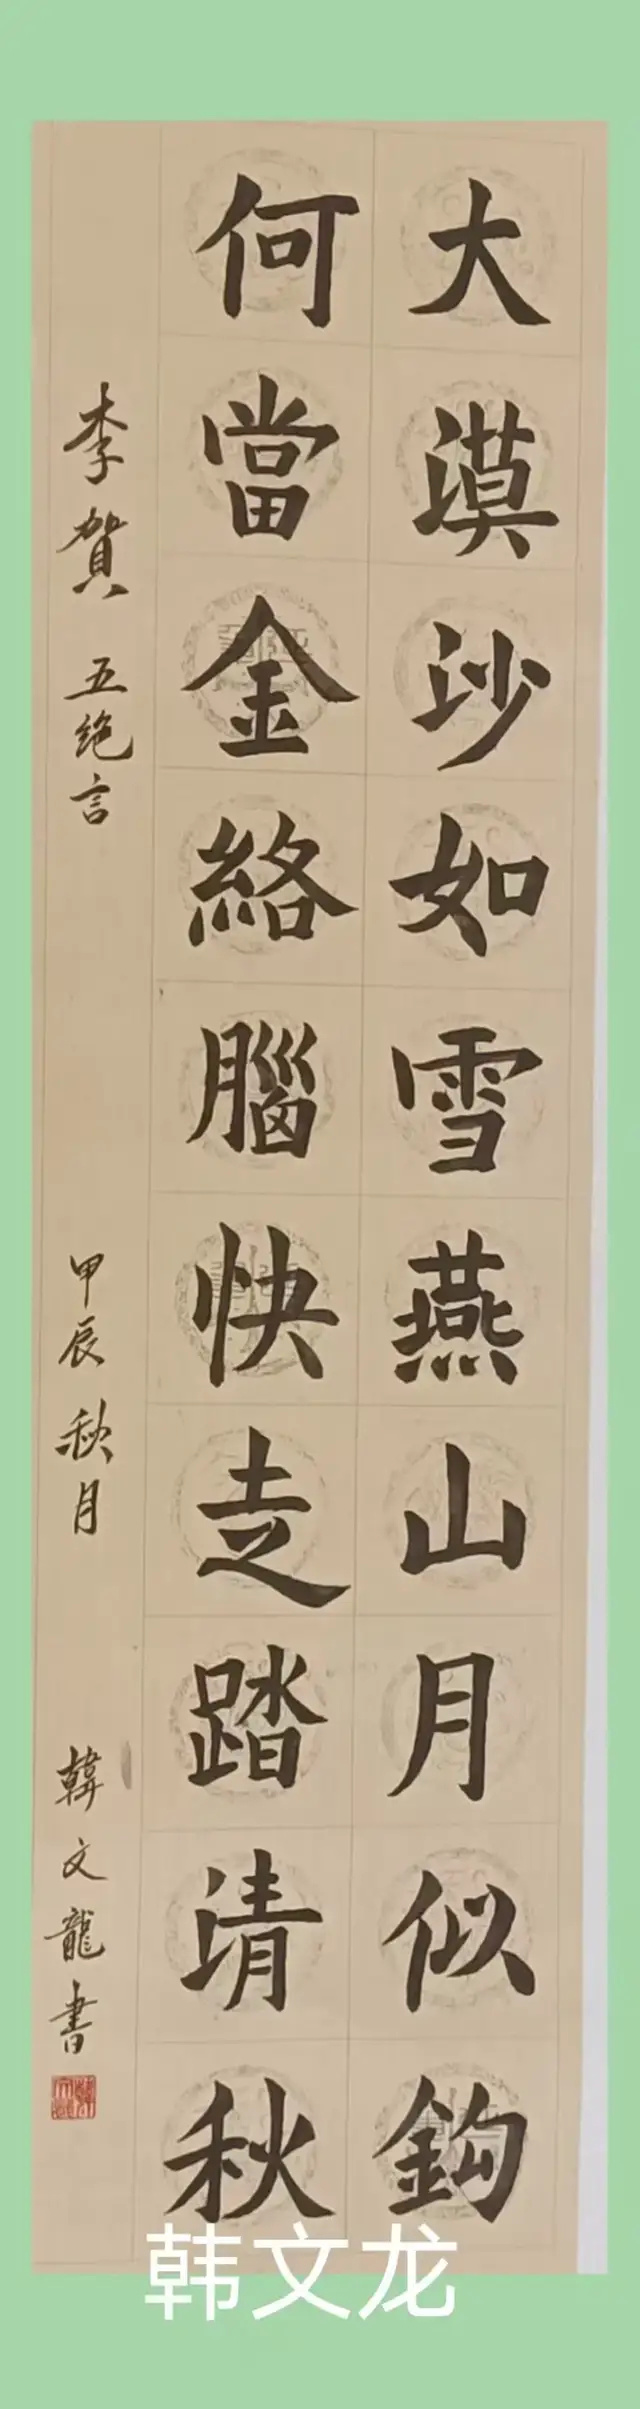 大漠沙如雪燕山月似鈎
何當金絡腦快走踏清秋
李賀 五绝言 甲辰秋月 韓文龍書
韩文龙